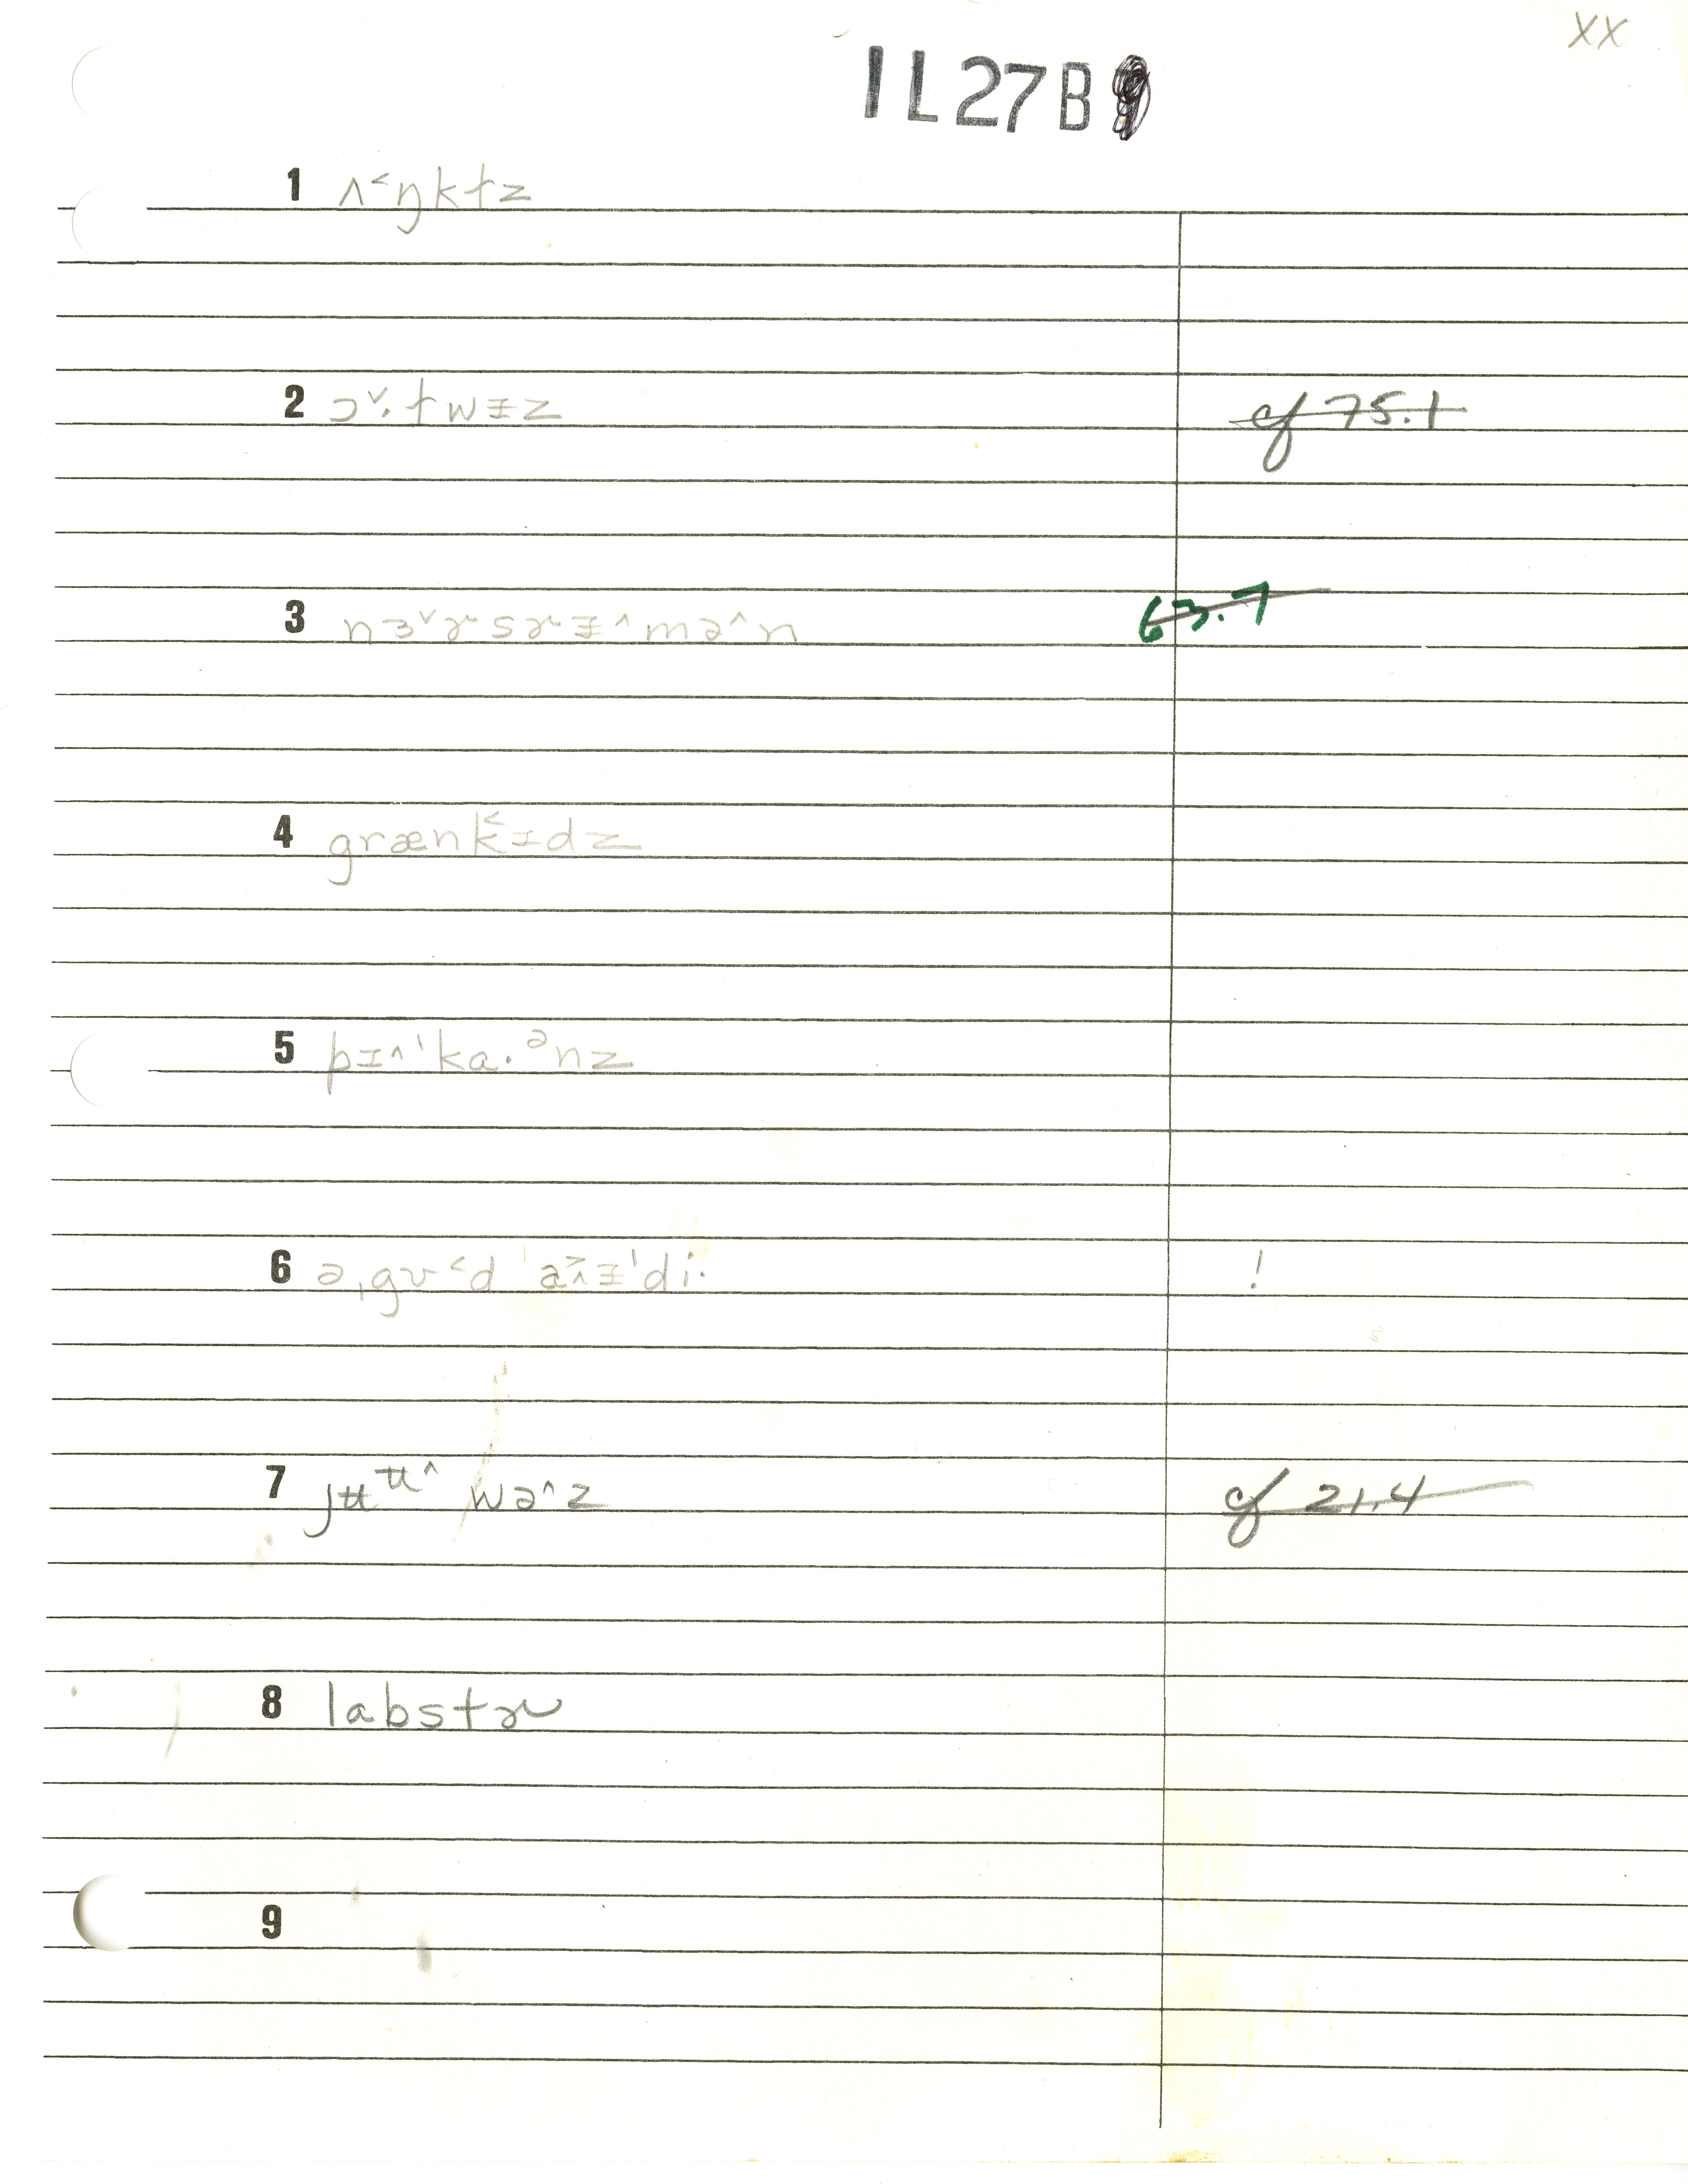 XX
1L27B
1 ʌ˂ŋktz
2 ɔ˅·twɪ̵z cf 75.1
3 nɜ˅ɚsɚɪ̵^mə^n 63.7
4 grænk˂ɪdz
5 pɪ^ˈka·ᵊnz
6 ə,gʊ˂d ˈa˃^ɪ̵ˈdi· !
7 jʉᵘ̵^ wə^z cf 21.4
8 labstɚ
9